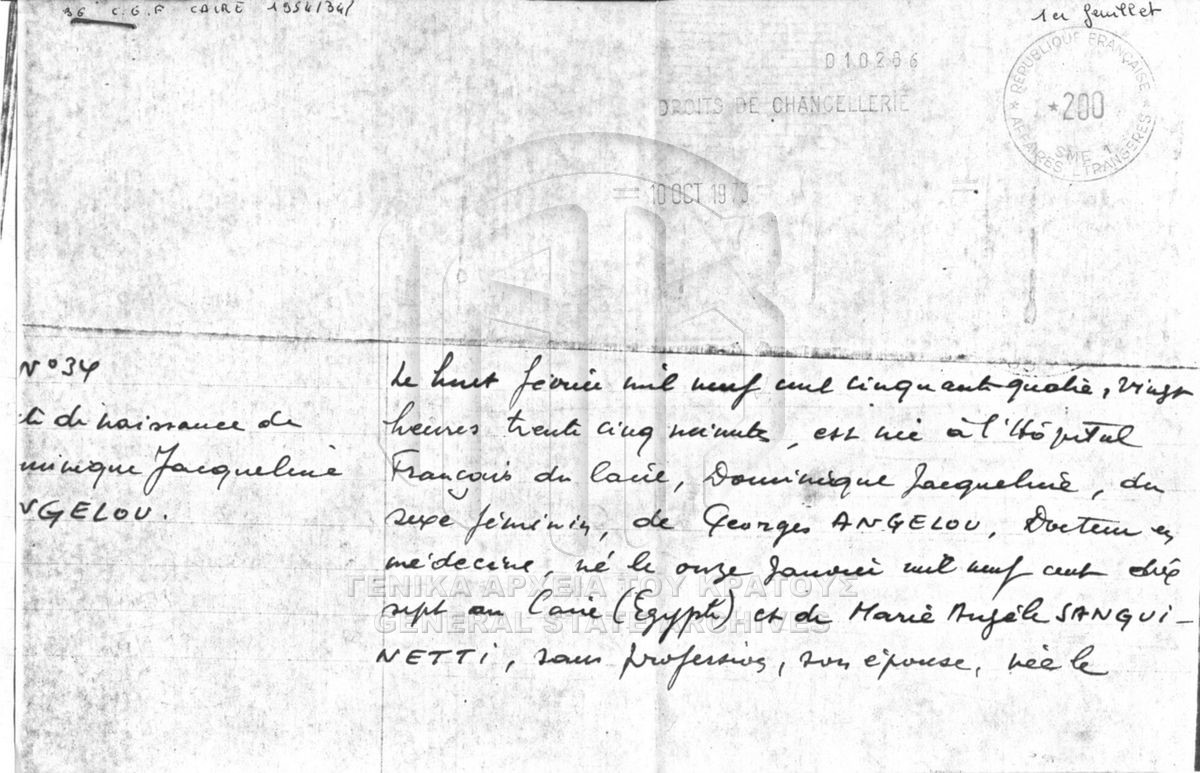 36 C.G.F CAIRE 1954/34/
1er feuillet
010286
DROITS DE CHANCELLERIE
RÉPUBLIQUE FRANÇAISE
*200
SMF 1
AFFAIRES ETRANGERES
10 OCT 1973
N° 34
te de naissance de
minique Jacqueline
NGELOU.
Le huit février mil neuf cent cinquante quatre, vingt
heures trente cinq minutes, est née à l'Hôpital
Français du Caire, Dominique Jacqueline, du
sexe féminin, de Georges ANGELOU, Docteur en
médecine, né le onze Janvier mil neuf cent dix
sept au Caire (Egypte) et de Marie Angèle SANGUI-
NETTI, sans profession, son épouse, née le
ΓΕΝΙΚΑ ΑΡΧΕΙΑ ΤΟΥ ΚΡΑΤΟΥΣ
GENERAL STATE ARCHIVES